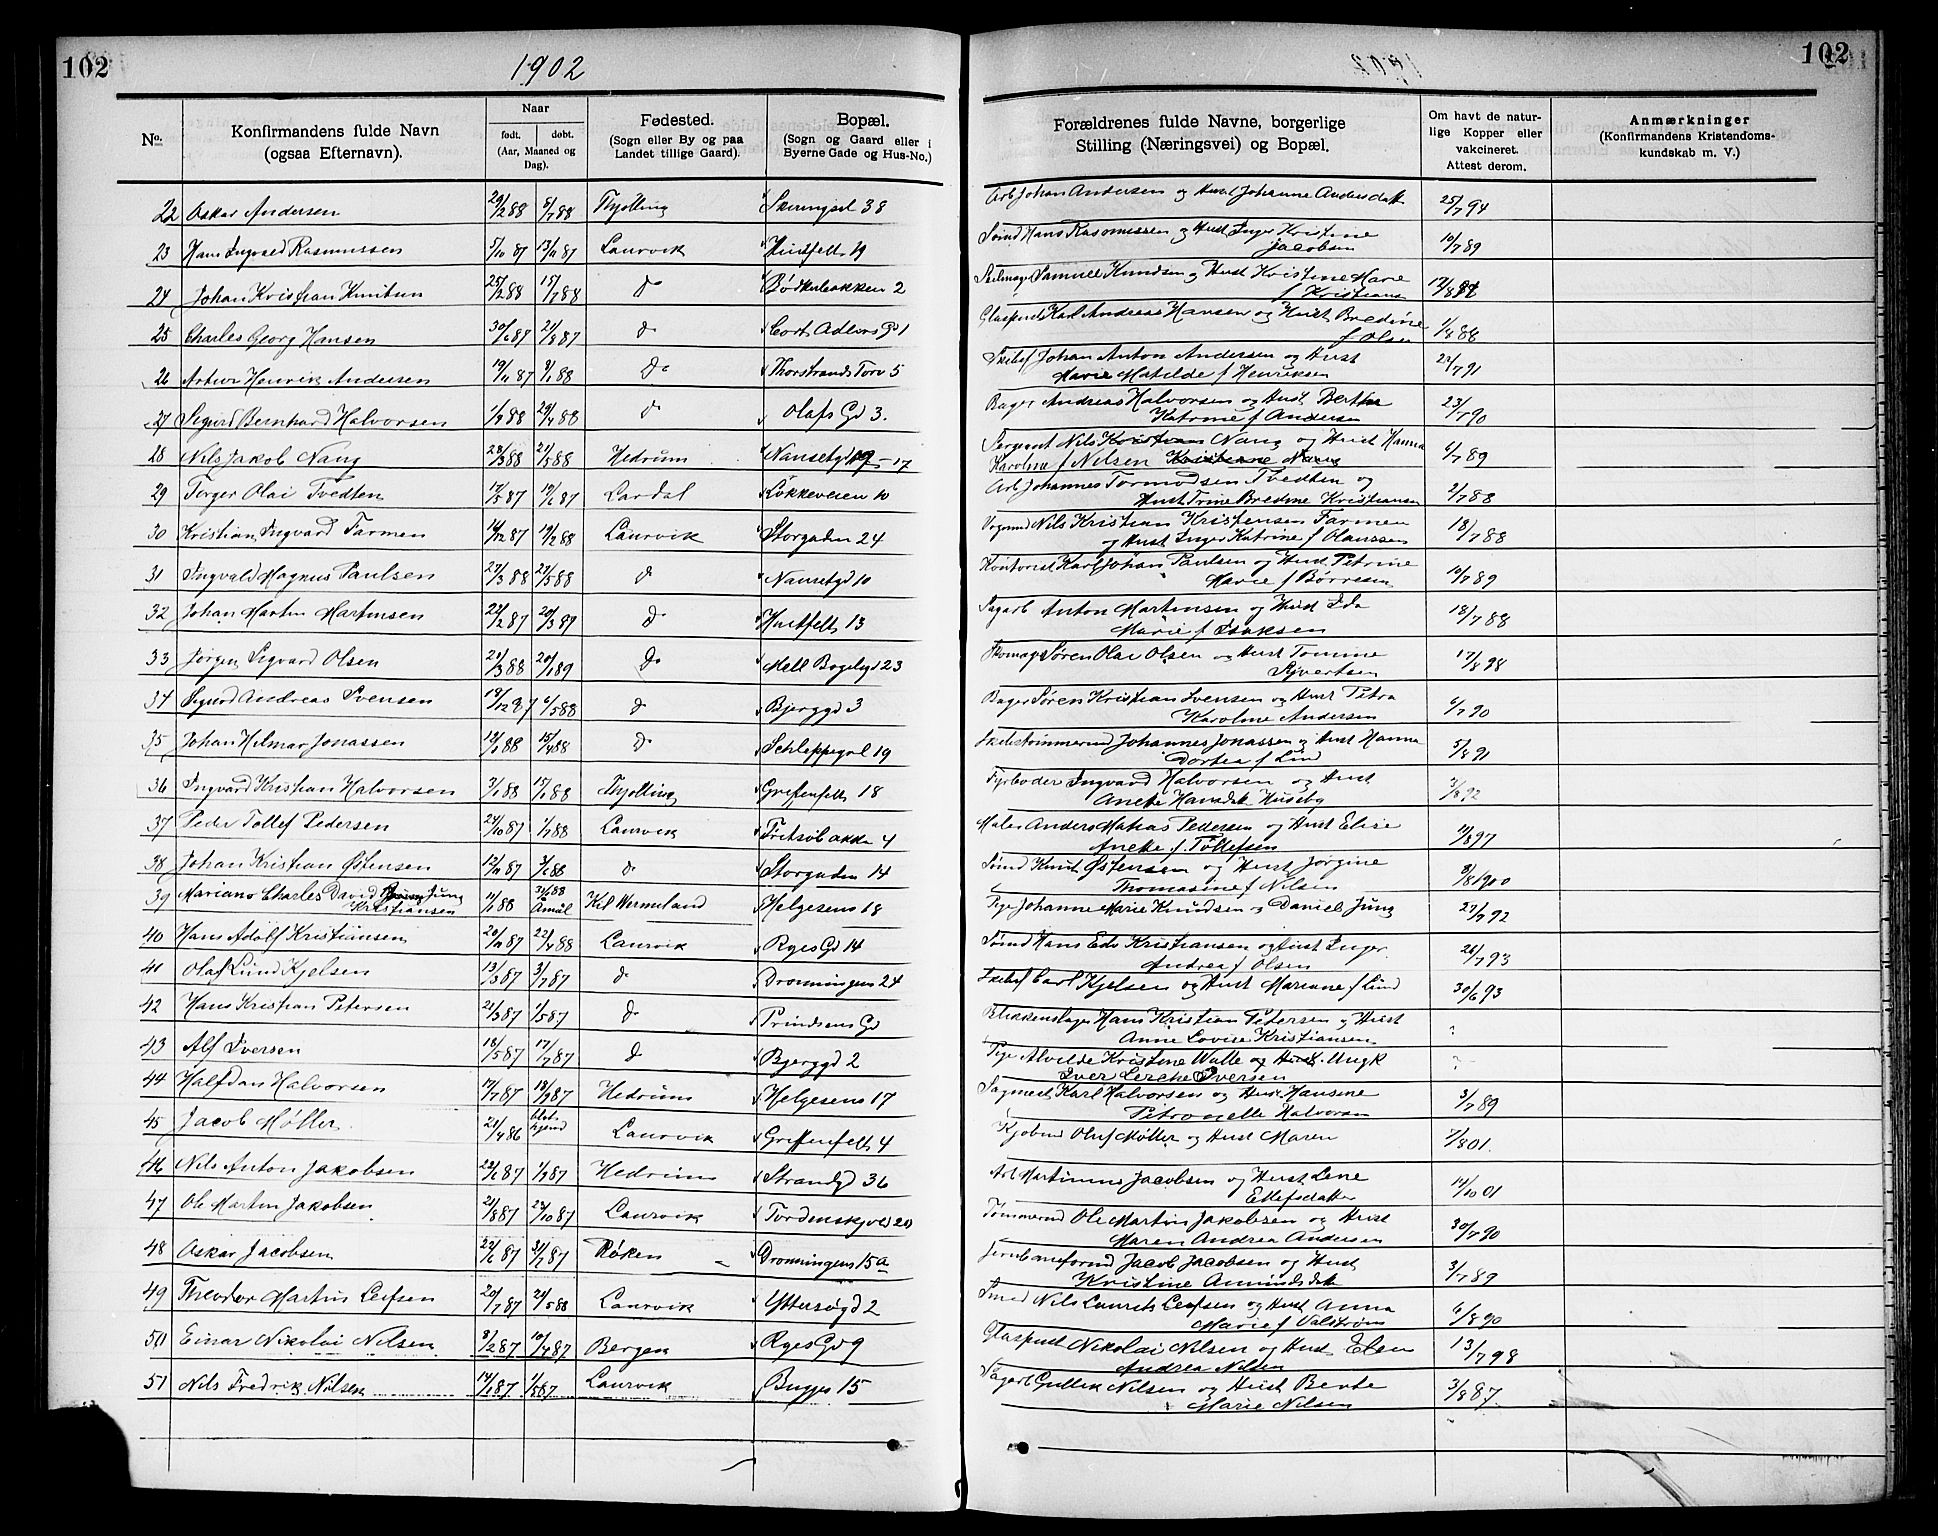 102
1902
No.
Konfirmandens fulde Navn
(ogsaa Efternavn).
Naar
født.
døbt.
(Aar, Maaned og
Dag).
Fødested.
(Sogn eller By og paa
Landet tillige Gaard).
Bopæl.
(Sogn og Gaard eller i
Byerne Gade og Hus-No.)
22 Oskar Andersen 29/2 88 8/7 88 Thjølling Skiringssl 38
23 Hans Ingvald Rasmussen 5/10 87 13/11 87 Laurvik Huitfelts 19
24 Johan Kristian Knutsen 25/2 88 15/7 88 do Bødkerbakken 2
25 Charles Georg Hansen 30/6 87 21/8 87 do Cort Adlers Gd 1
26 Artur Henrik Andersen 19/11 87 9/1 88 do Thorstrands Torv 5
27 Sigurd Bernhard Halvorsen 1/1 88 29/4 88 do Olafs Gd 3.
28 Nils Jakob Nang 28/3 88 21/5 88 Hedrum Nansetgd 17
29 Torger Olai Tvedten 17/5 87 19/6 87 Lardal Løkkeveien 10
30 Kristian Ingvard Farmen 14/12 87 19/2 88 Laurvik Storgaden 24
31 Ingvald Magnus Paulsen 27/3 88 27/5 88 do Nansetgd 10
32 Johan Martin Martinsen 22/2 87 20/3 89 do Huitfelts 13
33 Jørgen Sigvard Olsen 21/3 88 20/1 89 do Mell Bøgelsgd 23
34 Sigurd Andreas Svensen 19/12 87 6/5 88 do Bjerggd 3
35 Johan Hilmar Jonassen 12/1 88 15/4 88 do Schleppegrl 19
36 Ingvard Kristian Halvorsen 3/1 88 15/1 88 Thjølling Griffenfelts 18
37 Peder Tollef Pedersen 24/10 87 1/7 88 Laurvik Fritsøbakken 4
38 Johan Kristian Østensen 12/11 87 3/6 88 do Storgaden 14
39 Mariano Charles David Jung Kristiansen 11/1 88 Åmål Kil Wermeland Helgesens 18
40 Hans Adolf Kristiansen 20/11 87 22/4 88 Laurvik Ryes Gd 14
41 Olaf Lund Kjelsen 13/3 87 3/7 87 do Dronningens 24
42 Hans Kristian Petersen 21/3 87 1/5 87 do Prindsens Gd
43 Alf Iversen 18/5 87 17/7 87 do Bjerggd 2
44 Halfdan Halvorsen 17/7 87 18/9 87 Hedrum Helgesens 17
45 Jacob Møller 21/4 86 Laurvik Griffenfelts 4
46 Nils Anton Jakobsen 22/6 87 1/9 87 Hedrum Strandgd 36
47 Ole Martin Jakobsen 21/8 87 23/10 87 Laurvik Tordenskjolds 20
48 Oskar Jacobsen 22/6 87 31/7 87 Røken Dronningens 15a
49 Theodor Martin Leifsen 20/7 87 21/5 88 Laurvik Yttersøgd 2
50 Einar Nikolai Nilsen 8/2 87 10/4 87 Bergen Ryes Gd 9
51 Nils Fredrik Nilsen 14/1 87 1/5 87 Laurvik Bugges 15
102
Forældrenes fulde Navne, borgerlige
Stilling (Næringsvei) og Bopæl.
Om havt de natur-
lige Kopper eller
vakcineret.
Attest derom.
Anmærkninger
(Konfirmandens Kristendoms-
kundskab m. V.)
Arb Johan Andersen og Hust Johanne Andersdatt 25/7 94
Sømd Hans Rasmussen og Hust Inger Kristine
Jacobsen 10/7 89
Seilmag Samuel Knudsen og Hust Kristine Marie
f Kristians
Glaspust Karl Andreas Hansen og Hust Bredine
f Olsen 1/8 88
Skibsf Johan Anton Andersen og Hust
Marie Matilde f Henriksen 22/7 91
Bager Andreas Halvorsen og Hust Berthe
Katrine f Andersen 23/7 90
Sergeant Nils Kristian Nang og Hust Hanna
Karoline f Nilsen 6/7 89
Arb Johannes Tormodsen Tvedten og
Hust Trine Bredine Kristiansen 2/7 88
Vognmd Nils Kristian Kristensen Farmen
og Hust Inger Katrine f Olaussen 18/7 88
Kontorist Karl Johan Paulsen og Hust Petrine
Marie f Børresen 10/7 89
Sagarb Anton Martinsen og Hust Ida
Marie f Isaksen 18/7 88
Skomag Søren Olai Olsen og Hust Tomine
Sivertsen 17/8 98
Bager Søren Kristian Svensen og Hust Petra
Karoline Andersen 6/7 90
Skibstømmermd Johannes Jonassen og Hust Hanna
Dortea f Lind 5/8 91
Fyrbøder Ingvard Halvorsen og Hust
Anette Hansdatt Huseby 3/8 92
Maler Anders Matias Pedersen og Hust Elise
Anette f Tollefsen 11/8 97
Sømd Knut Østensen og Hust Jørgine
Thomasine f Nilsen 8/8 1900
Pige Johanne Marie Knudsen og Daniel Jung 27/7 92
Sømd Hans Edv Kristiansen og Hust Inger
Andrea f Olsen 26/7 93
Skibsf Carl Kjelsen og Hust Mariane f Lind 30/6 93
Blikkenslager Hans Kristian Petersen og Hust
Anne Lovise Kristiansen ?
Pige Alvilde Kristine Walle og Ungk
Iver Lerche Iversen ?
Sagmest Karl Halvorsen og Hust Hansine
Petronelle Halvorsen 3/7 89
Kjøbmd Oluf Møller og Hust Maren 7/8 01.
Arb Martinius Jacobsen og Hust Lene
Ellefsdatter 14/10 01
Tømmermd Ole Martin Jakobsen og Hust
Maren Andrea Andersen 30/7 90
Jernbaneformd Jacob Jacobsen og Hust
Kristine Amundsdatt 3/7 89
Smed Nils Laurits Leifsen og Hust Anna
Marie f Valstrøm 6/8 90
Glaspust Nikolai Nilsen og Hust Elen
Andrea Nilsen 13/7 98
Sagarb Gullik Nilsen og Hust Berte
Marie Nilsen 3/8 87